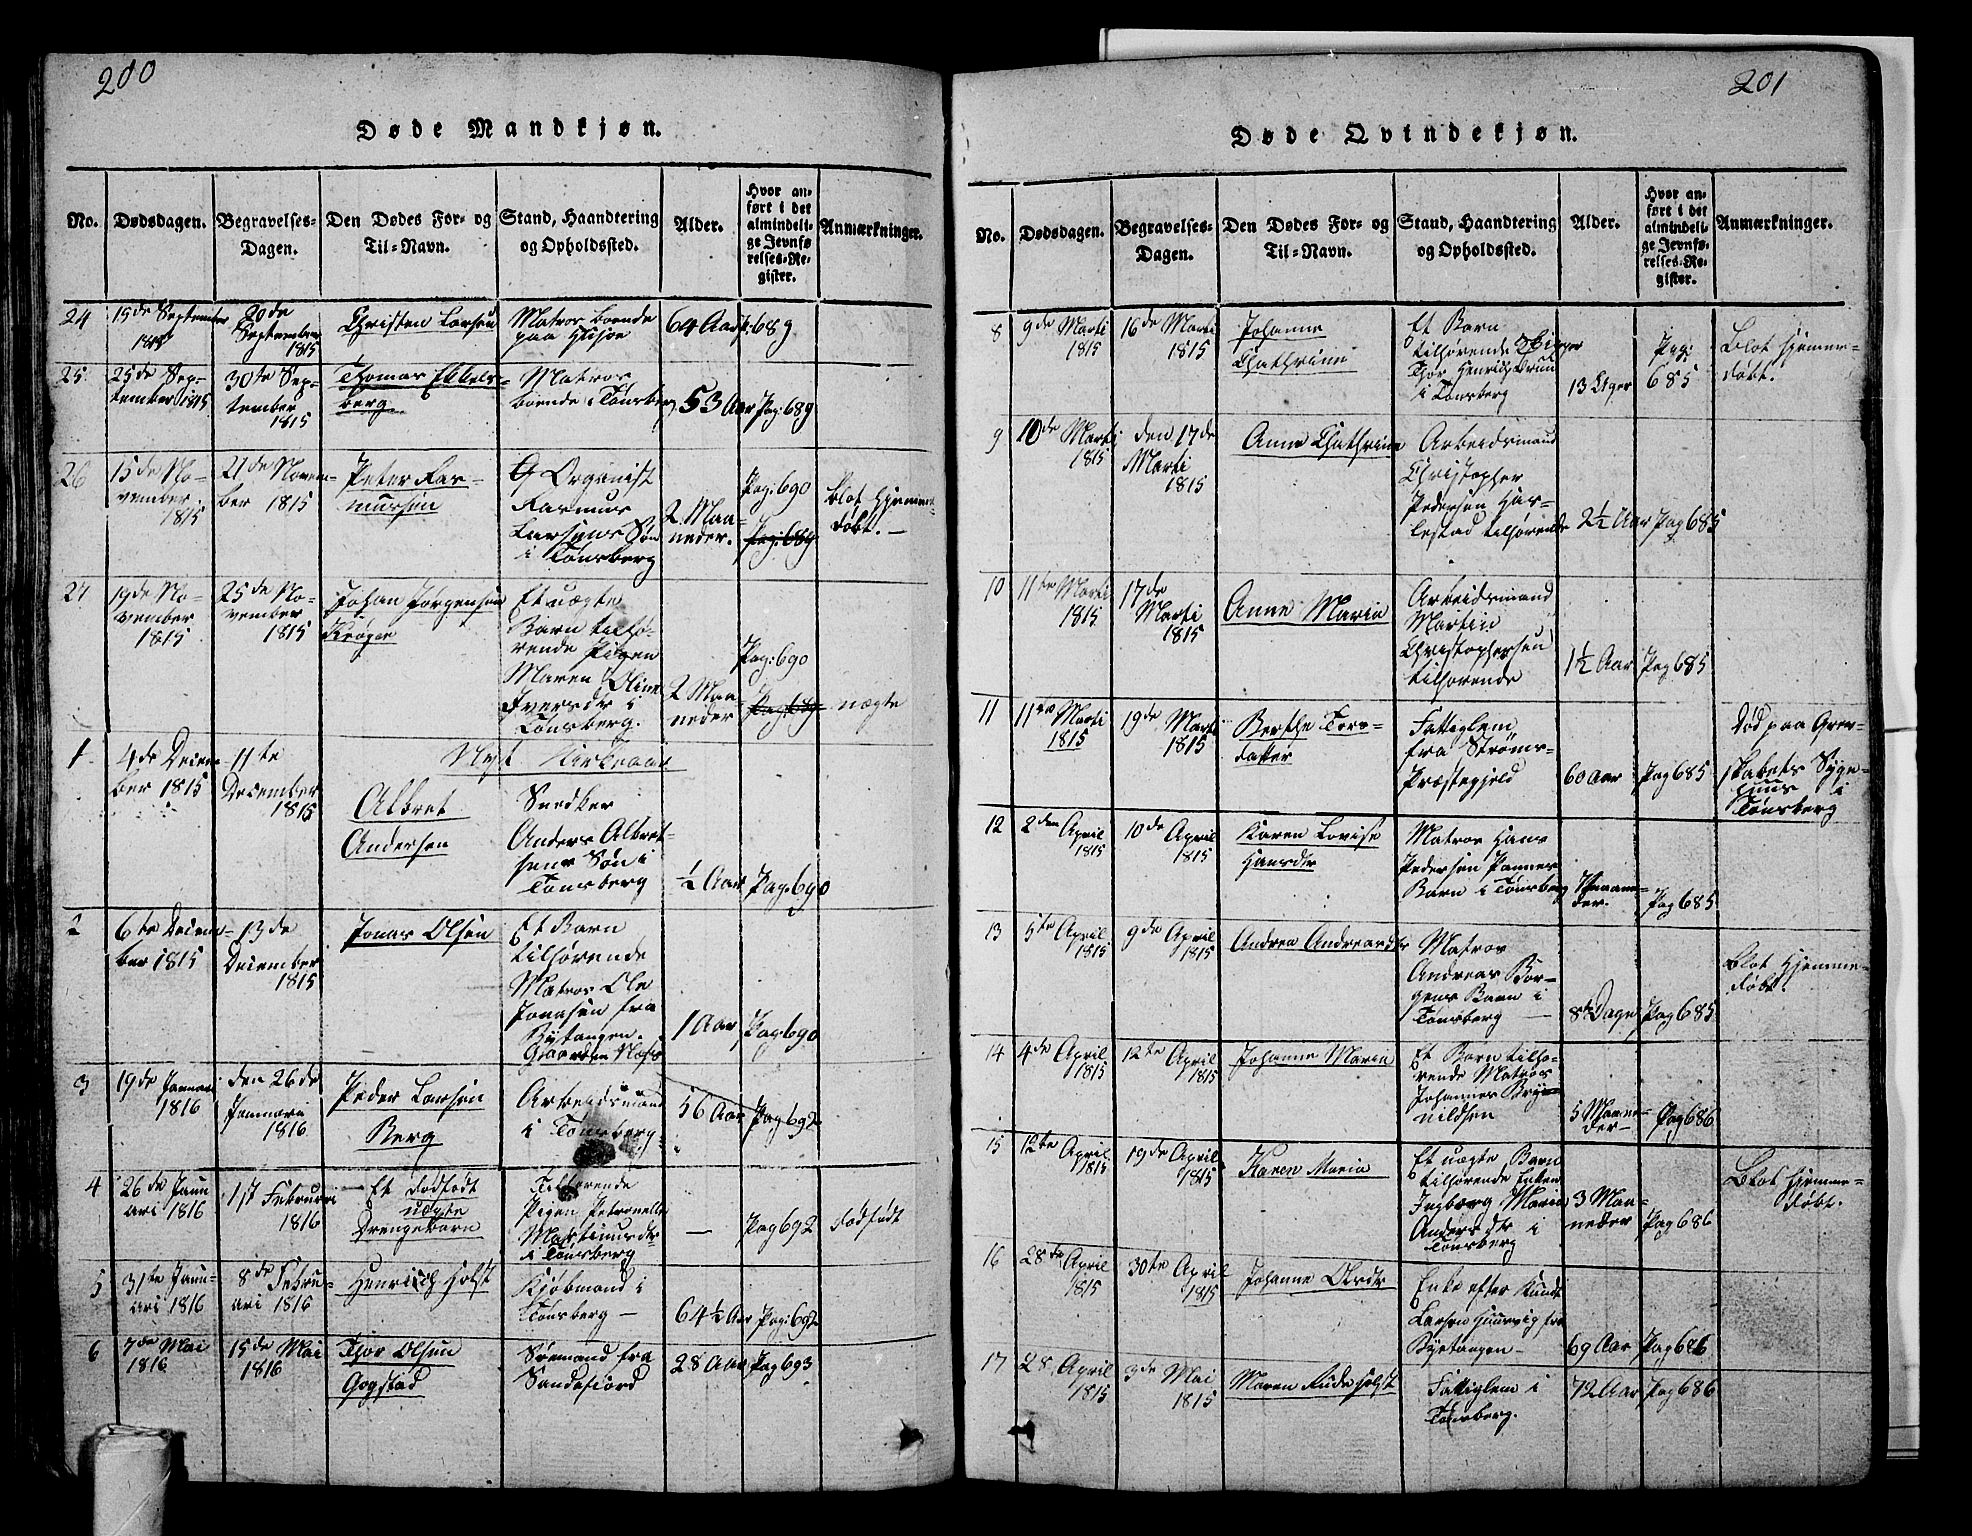 200
Døde Mandkjøn.
No. Dødsdagen. Begravelses-Dagen. Den Dødes For- og Til-Navn. Stand, Haandtering og Opholdssted. Alder. Hvor anført i det almindelige Jevnførelses-Register. Anmærkninger.
24
15de September
20de
September
1815
Christen Larsen
Matros boende
paa
64 Aar
689
25.
25de Sep-
tember 1815
30te Sep-
tember
1815
Thomas
berg
Matros
boende i Tønsberg
53 Aar
Pag: 689
26
15de No-
vember
1815
21de Novem-
ber 1815
Peter Ras-
mussen
Orgenist
Rasmus
Larsens Søn
i Tønsberg
2 Maa-
neder.
Pag: 690
Pag: 689
Blot hjemme-
døbt.
27
19de No-
vember
1815
25de No-
vember
1815
Johan Jørgensen
Krøger
Et uægte
Barn tilhø-
rende Pigen
Maren Oline
Iversdr i
Tønsberg.
2 Maa-
neder
Pag: 690
uægte
Nyt Kirkeaar
1
4de Decem-
ber 1815
11te
December
1815
Albret
Andersen
Snedker
Anders Albret-
sens Søn i
Tønsberg
½ Aar
Pag: 690
2
6te Decem-
ber 1815
13de
December
1815
Jonas Olsen
Et Barn
tilhørende
Matros Ole
Jonasen fra
Bytangen.
1 Aar
Pag: 690
3
19de Januari
1816
den 26de
Januari
1816
Peder Larsen
Berg
Arbeidsmand
i Tønsberg
56 Aar
Pag 692
4
26de Janu-
ari 1816
1st Februari
1816
Et dødfødt
uægte
Drengebarn
Tilhørende
Pigen Petronelle
i Tønsberg
—
Pag 692
dødfødt
5
31te Janu-
ari 1816
8de Febru-
ari 1816
Henrich Holst
Kjøbmand i
Tønsberg —
64½ Aar
Pag: 692
6
7de Mai
1816
15de Mai
1816
Thor Olsen
Gogstad
Søemand fra
Sandefiord
28 Aar
Pag 693
201
Døde Qvindekjøn.
No. Dødsdagen. Begravelses-Dagen. Den Dødes For- og Til-Navn. Stand, Haandtering og Opholdssted. Alder. Hvor anført i det almindelige Jevnførelses-Register. Anmærkninger.
8
9de Marti
1815
16de Marti
1815
Johanne
Cathrine
Et Barn
tilhørende
Thor
i Tønsberg
13 Uger
Pag:
685
Blot hjemme-
døbt.
9
10de Marti
1815
den 17de
Marti
1815
Anne Cathrine
Arbeidsmand
Christopher
Pedersen Har-
lestad tilhørende
2½ Aar
Pag 685
10
11te Marti
1815
17de
Marti
1815
Anne Maria
Arbeidsmand
Martin
Christophersen
tilhørende
1½ Aar
Pag 685
11
11te Marti
1815
19de Marti
1815
Berthe Tors-
datter
Fattiglem
fra Strøms-
Præstegjeld
60 Aar
Pag 685
Død paa Grev-
skabets Syge-
huus i
Tønsberg
12
2den April
1815
10de April
1815
Karen Lovise
Hansdr
Matros Hans
Pedersen
Barn i Tønsberg
Pag 685
13
5te April
1815
9de April
1815
Andrea Andreasdr
Matros
Andreas Bør-
gens Barn i
Tønsberg —
8te Dage
Pag 685
Blot Hjemme-
døbt.
14
4de April
1815
12te April
1815
Johanne Maria
Et Barn tilhø-
rende Matros
Johannes Bryn-
nildsen
5 Maane-
der —
Pag 686
15
12te April
1815
19de April
1815
Karen Maria
Et uægte Barn
tilhørende Enken
Ingborg Maria
Andersdr i
Tønsberg
3 Maa-
neder
Pag 686
Blot Hjemme-
døbt.
16
28de April
1815
30te April
1815
Johanne Olesdr
Enke efter Knud
Larsen fra
Bytangen —
69 Aar
Pag 686
17
28 April
1815
3de Mai
1815
Maren Rude Holst
Fattiglem i
Tønsberg.
72 Aar
Pag 686